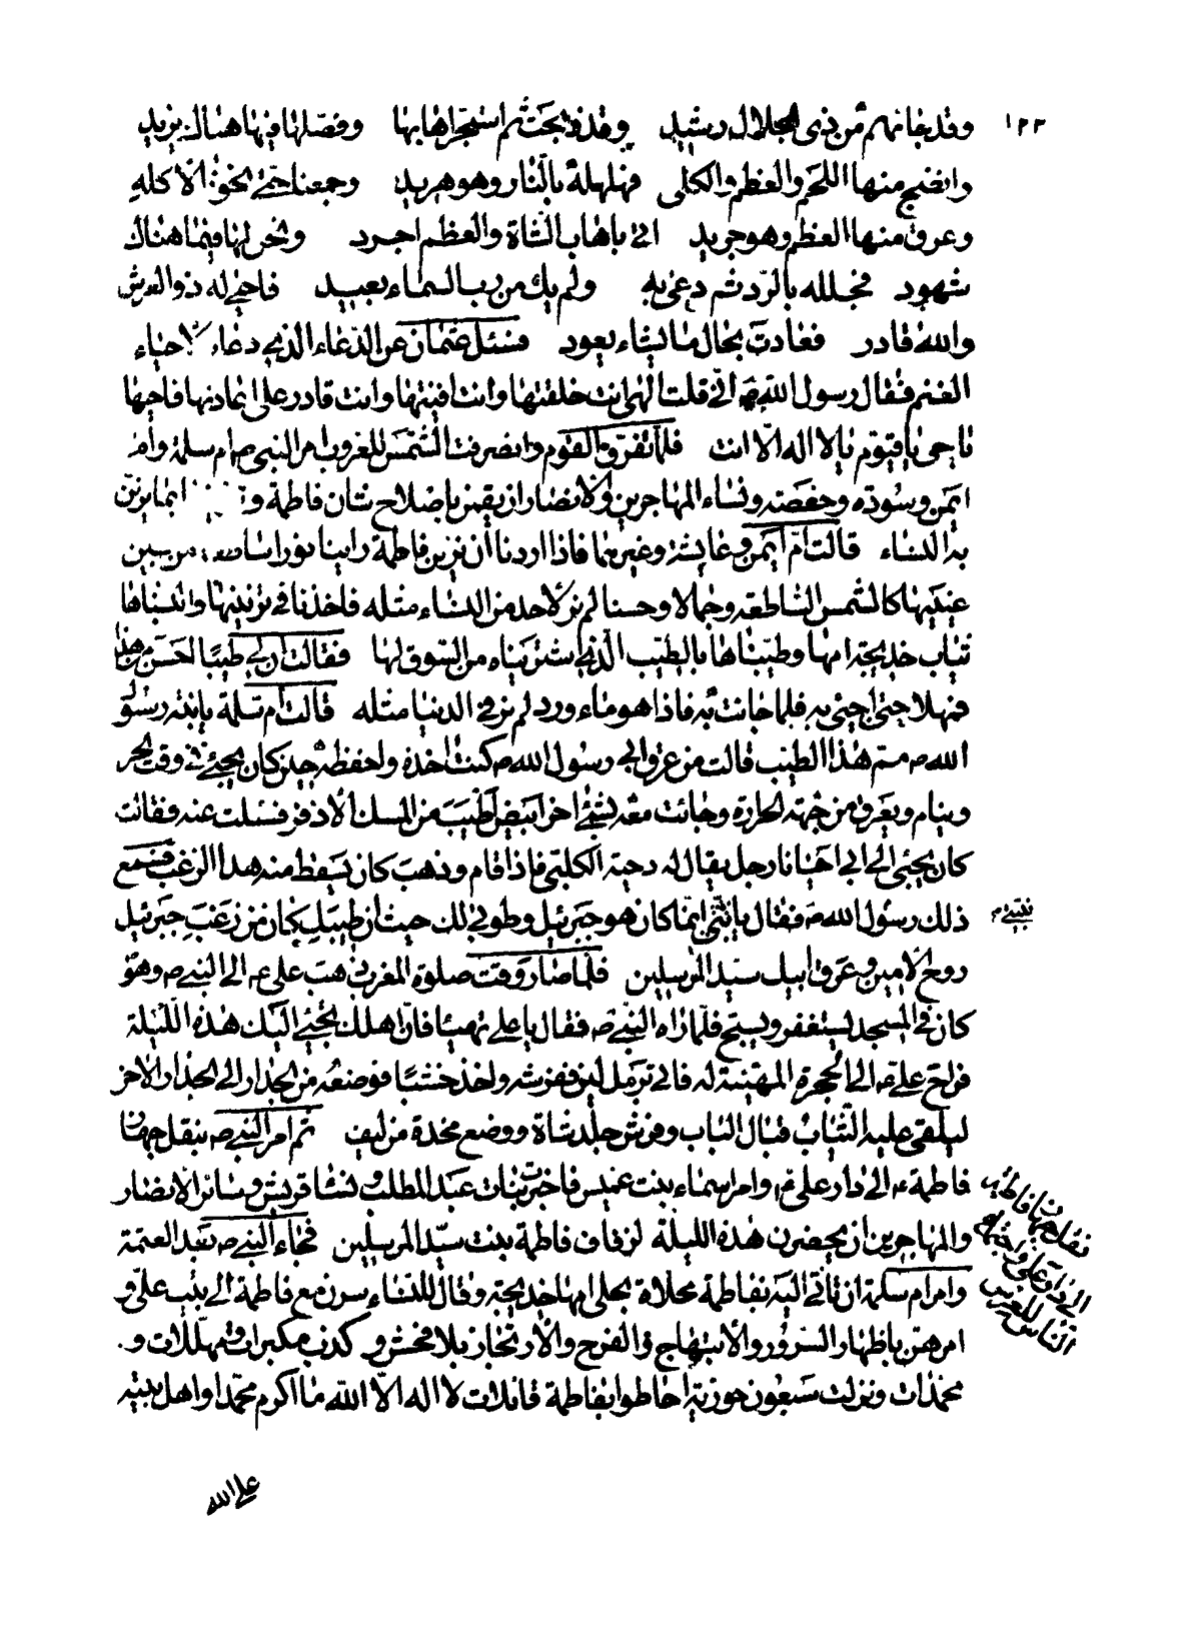 ١٢٢
وقد جانهم من ذى الجلال رشيد وقد ذبحت ثم استجرها بها وفصلها فيها هناك يزيد
وانضج منها اللحم والعظم والكلى فهلهله بالنار وهو هريد وجمعنا حتى نحو الاكله
وعرق منها العظم وهو جريد اتى باهاب الشاة والعظم اجرد ونحن لها فيما هناك
شهود فجلله بالبرد ثم دعى به ولم يك من رب السماء بعيد فاحيى له ذو العرش
والله قادر فعادت بحال ما يشاء يعود فسئل عثمان عن الدعاء الذى دعاه لاحياء
الغنم فقال رسول الله ص انى قلت الهى انت خلقتها وانت افنيتها وانت قادر على اعادتها فاحيها
ياحى ياقيوم يا لا اله الا انت فلما تفرق القوم وانصرفت الشمس للغروب امر النبى ص ام سلمة وام
ايمن وسودة وحفصة ونساء المهاجرين والانصار ان يقمن باصلاح شان فاطمة و ايما يزين
به النساء قالت ام ايمن وعايشة وغيرهما فاذا اردنا ان نزين فاطمة راينا نورا ساطعا من بين
عينيها كالشمس الساطعة وجمالا وحسنا لم نر لاحد من النساء مثله فاخذنا فى تزيينها والبسناها
ثياب خديجة امها وطيبناها بالطيب الذى اشتريناه من السوق لها فقالت ان لى طيبا احسن من هذا
فهلا حتى اجئ به فلما جائت به فاذا هو ماء ورد لم نر فى الدنيا مثله قالت ام سلمة يا بنة رسول
الله ص مم هذا الطيب قالت من عرق ابى رسول الله ص كنت اخذه واحفظه حين كان يجئ فى وقت الحر
وينام ويعرق من جهة الحرارة وجائت معه بشئ اخر ابيض اطيب من المسك الاذفر فسئلت عنه فقالت
كان يجئ الى ابى احيانا رجل يقال له دحية الكلبى فاذا قام وذهب كان يسقط منه هذا الزغب فسمع
ذلك رسول الله ص فقال يا بنتى انما كان هو جبرئيل وطوبى لك حيث ان طيبك كان من زغب جبرئيل
روح الامين وعرق ابيك سيد المرسلين فلما صار وقت صلوة المغرب ذهب على ع الى النبى ص وهو
كان فى المسجد يستغفر ويسبح فلما راه النبى ص فقال يا على تهيئا فان اهلك يجئ اليك هذه الليلة
فراح على ع الى الحجرة المهيئة له فاتى برمل لين ففرشه واخذ خشبا فوضعه من الجدار الى الجدار الاخر
ليلقى عليه الثياب قبال الباب وفرش جلد شاة ووضع مخدة من ليف ثم امر النبى ص بنقل جهاز
فاطمة ع الى دار على ع وامر اسماء بنت عميس فاخبرت بنات عبد المطلب ونساء قريش وسائر الانصار
والمهاجرين ان يحضرن هذه الليلة لزفاف فاطمة بنت سيد المرسلين فجاء النبى ص بعد العتمة
وامر ام سلمة ان تاتى اليه بفاطمة محلاة بحلى امها خديجة وقال للنساء سرن مع فاطمة الى بيت على و
امرهن باظهار السرور والابتهاج والفرح والارتجاز بلا فحش و كذب مكبرات ومهللات و
محمدات ونزلت سبعون حورية احاطوا بفاطمة قائلات لا اله الا الله ما اكرم محمدا واهل بيته
نقل جهاز فاطمة
الى دار على
الناس للغروب
على الله